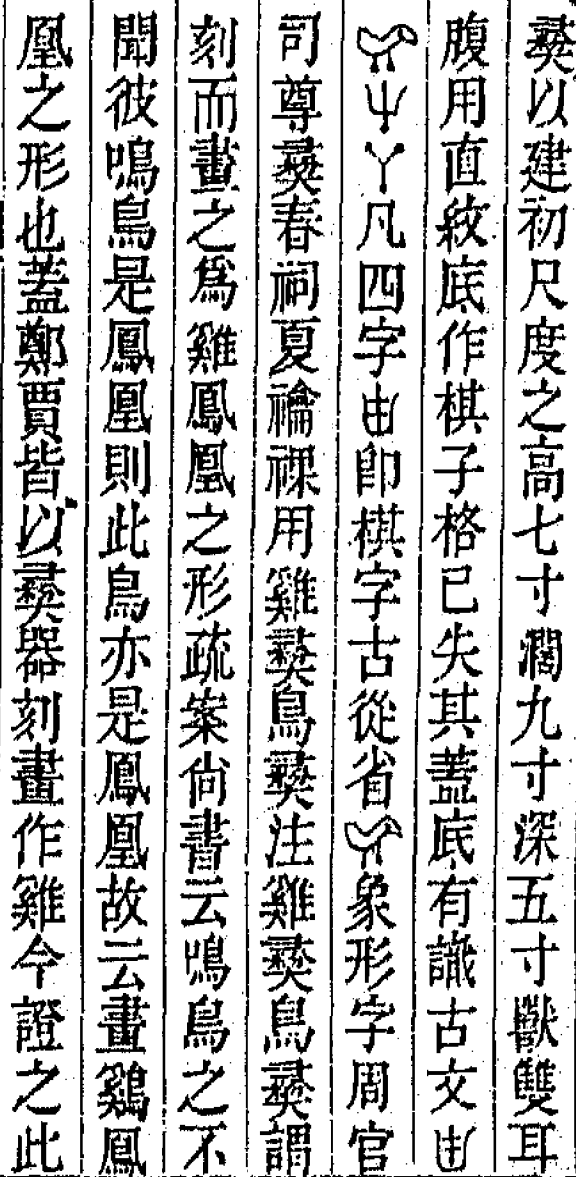 彝以建初尺度之高七寸濶九寸深五寸獸雙耳
腹用直紋底作棋子格已失其蓋底有識古文𠙹
凡四字𠙹卽棋字古從省象形字周官
司尊彝春祠夏禴祼用雞彝鳥彝注雞彝鳥彝謂
刻而畫之爲雞鳳凰之形疏案尙書云鳴鳥之不
聞彼鳴鳥是鳳凰則此鳥亦是鳳凰故云畫鷄鳳
凰之形也蓋鄭賈皆以彝器刻畫作雞今證之此